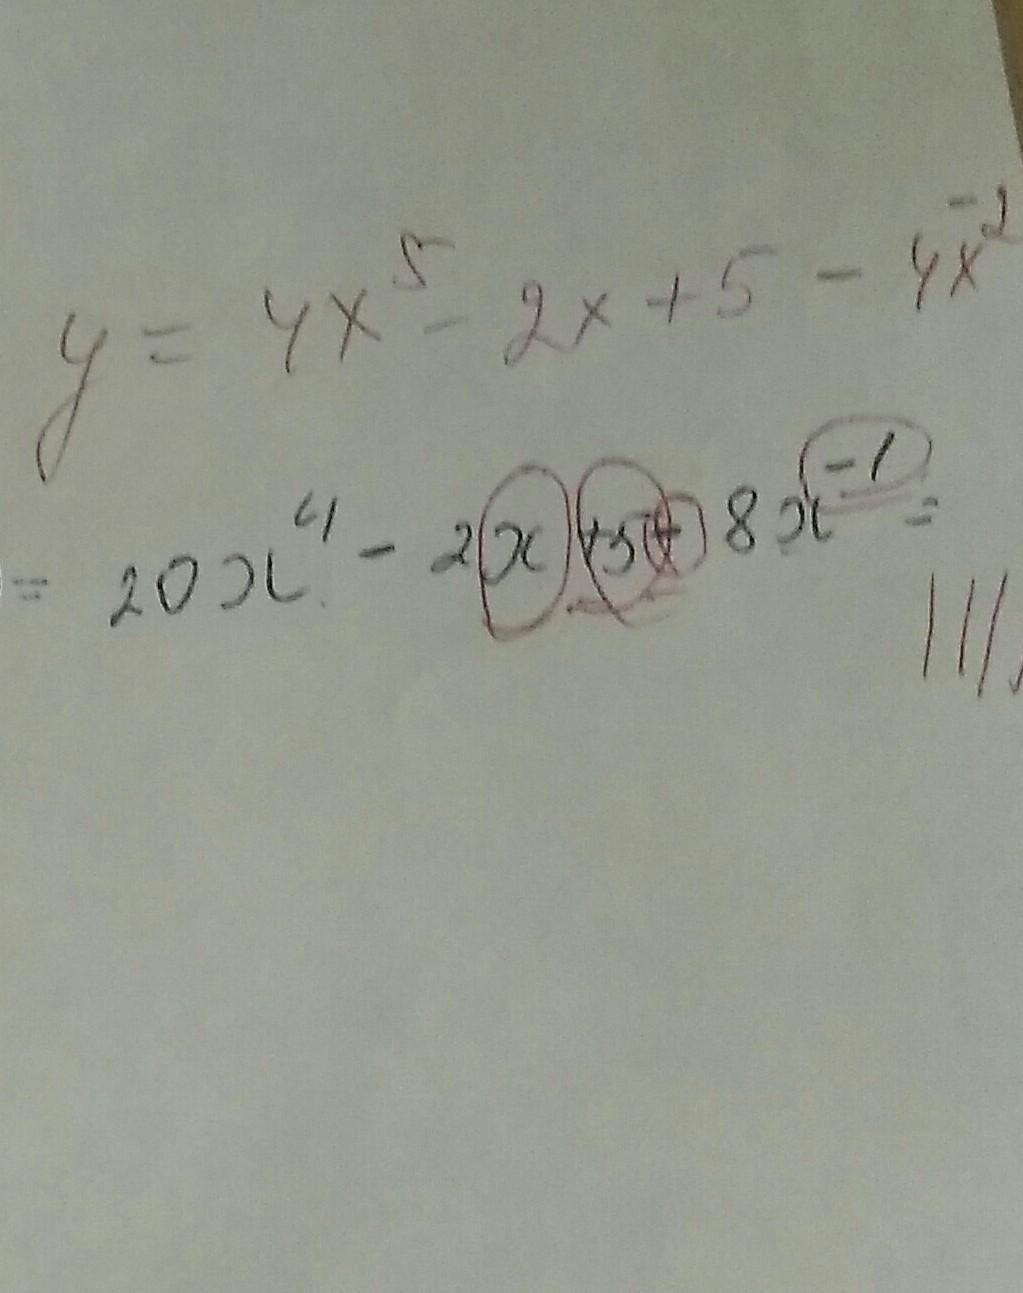 y = 4x⁵ - 2x + 5 - 4x⁻²
= 20x⁴ - 2x + 5 + 8x⁻¹ =